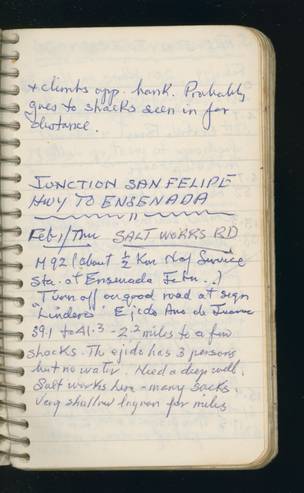 + climbs opp. bank. Probably
goes to shacks seen in far
distance.
JUNCTION SAN FELIPE
HWY TO ENSENADA
Feb 1/Thu SALT WORKS RD
M 92 (about 1/2 Km N of Service
Sta. at Ensenada Febu...)
Turn off on good road at sign
"Lindero" Ejido Ano de Juarez
39.1 to 41.3 - 2.2 miles to a few
shacks. The ejido has 3 persons
but no water. Need a deep well.
Salt works here - many sacks.
Very shallow lagoon for miles